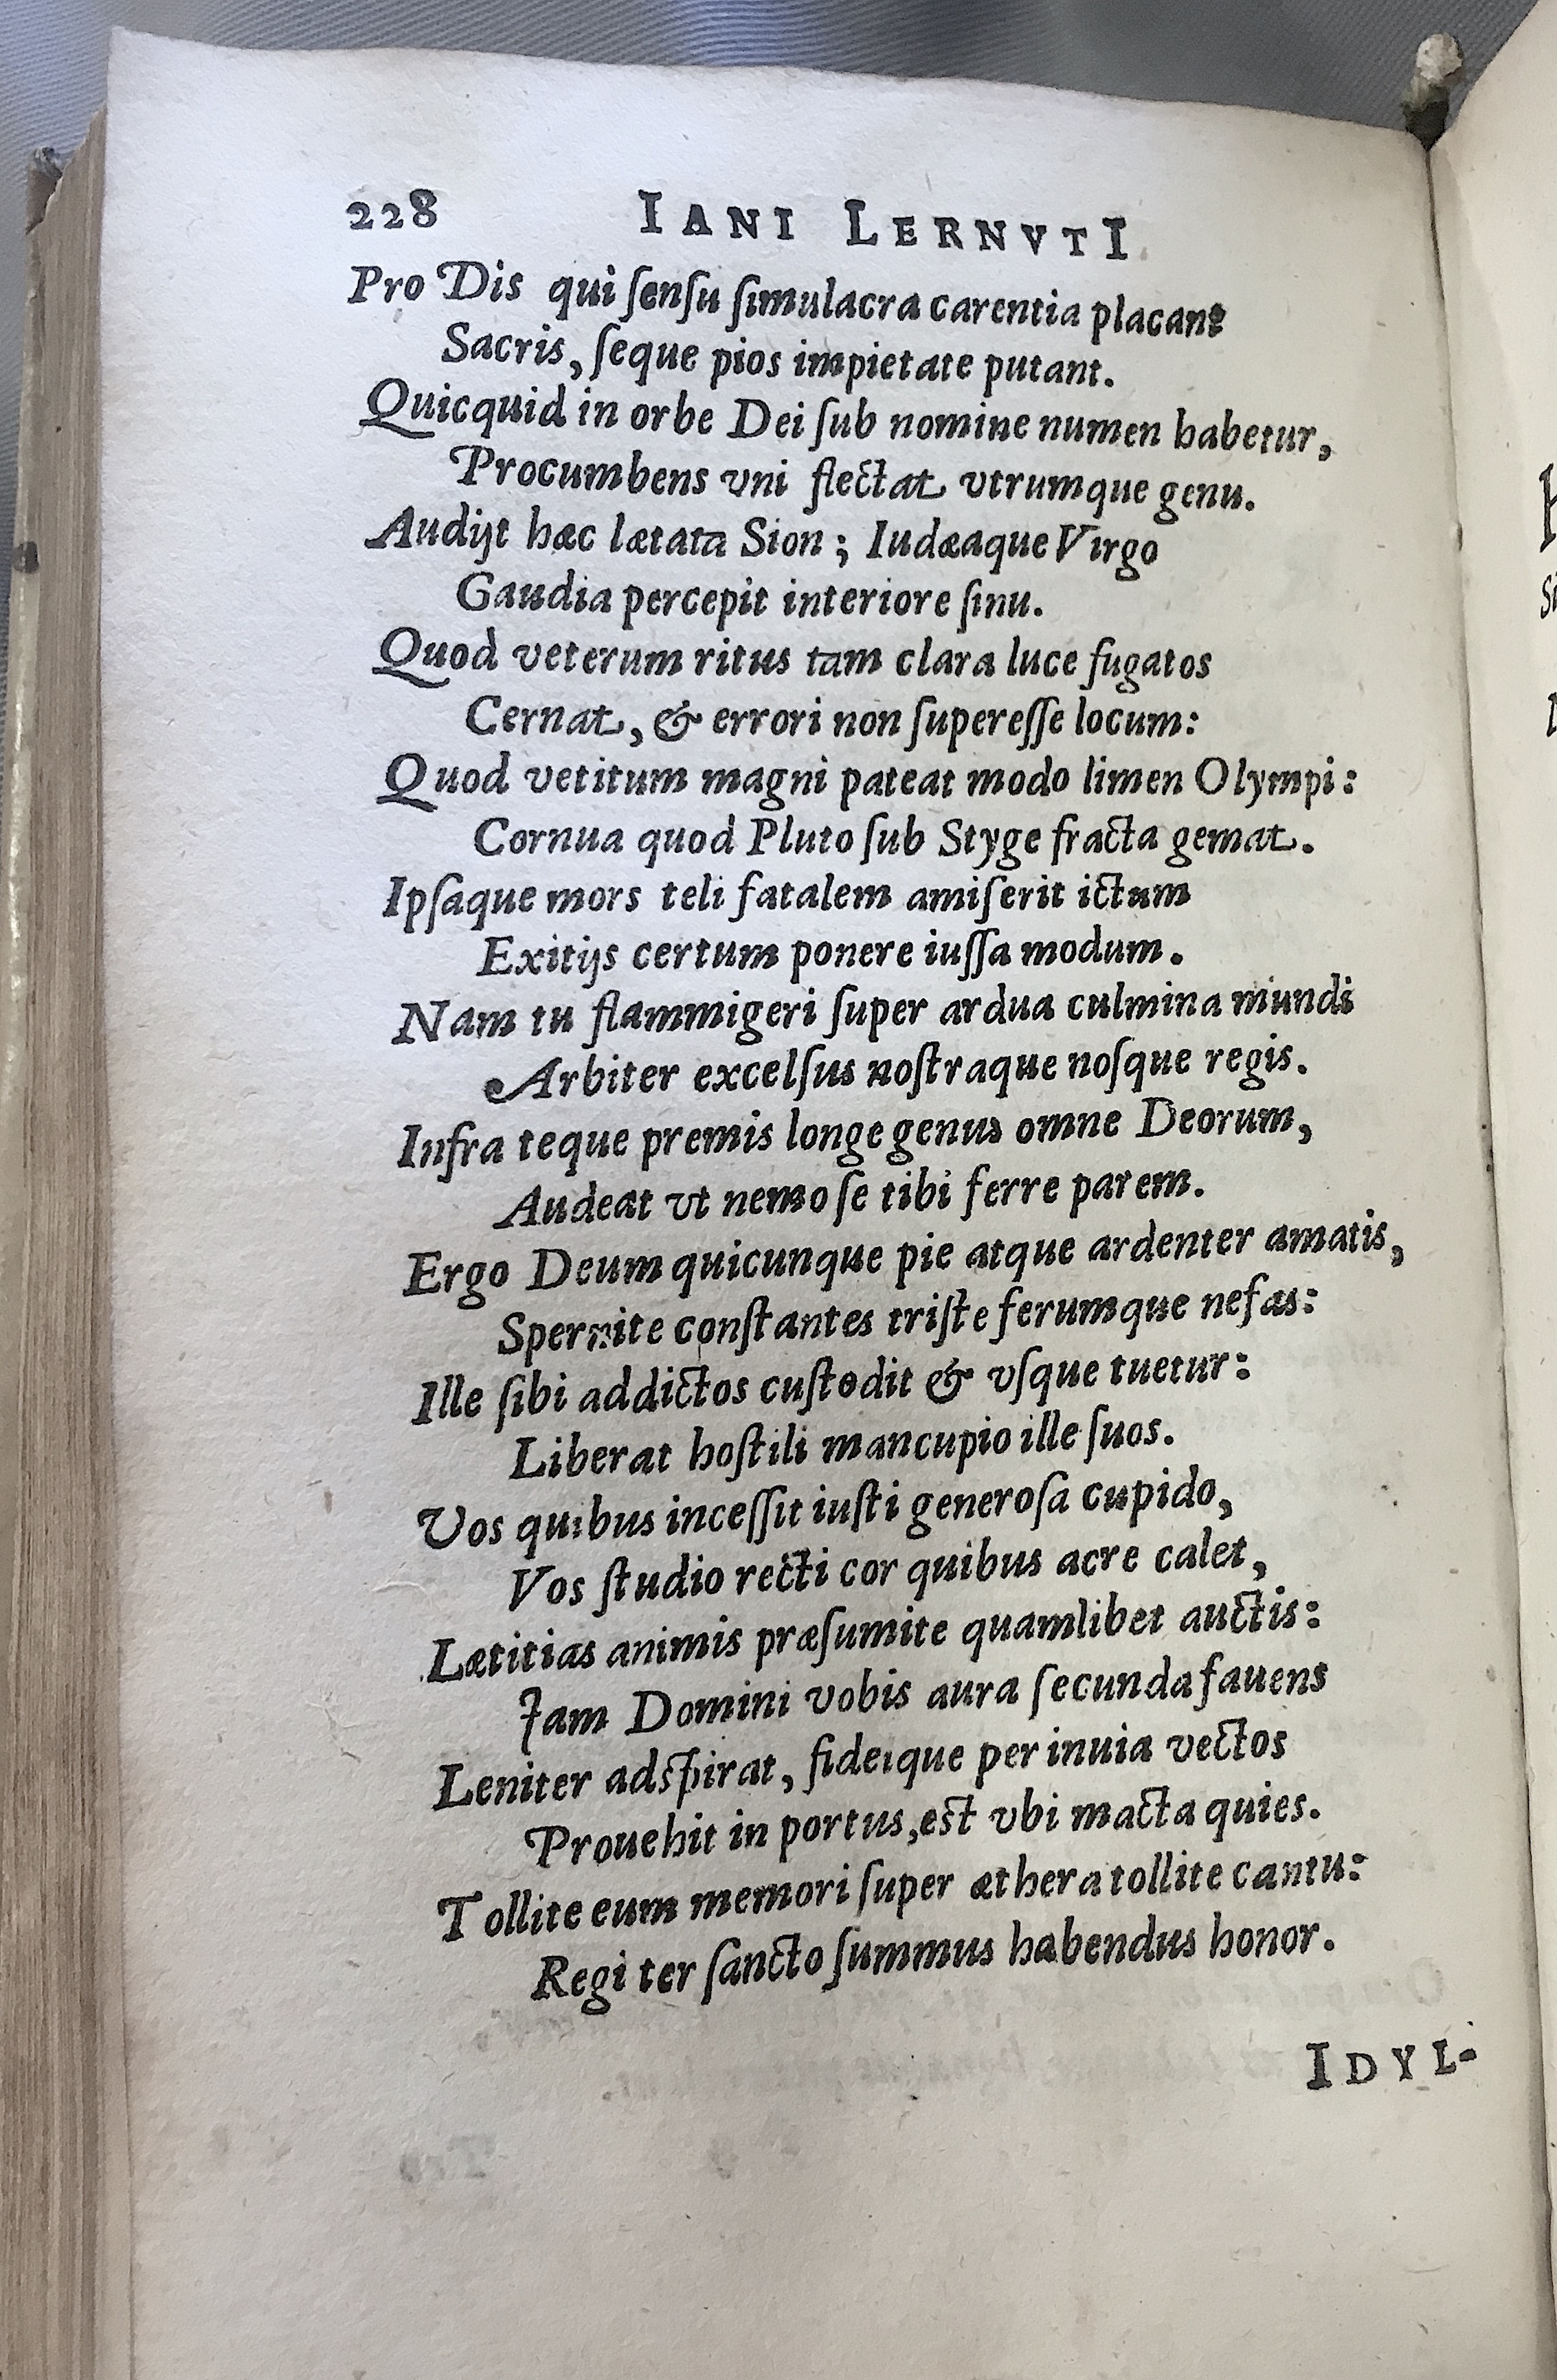 228 IANI LERNVTI
Pro Dis qui ſenſu ſimulacra carentia placant
Sacris, ſeque pios impietate putant.
Quicquid in orbe Dei ſub nomine numen habetur,
Procumbens vni flectat vtrumque genu.
Audijt hæc lætata Sion; Iudæaque Virgo
Gaudia percepit interiore ſinu.
Quod veterum ritus tam clara luce fugatos
Cernat, & errori non ſupereſſe locum:
Quod vetitum magni pateat modo limen Olympi:
Cornua quod Pluto ſub Styge fracta gemat.
Ipſaque mors teli fatalem amiſerit ictum
Exitijs certum ponere iuſſa modum.
Nam tu flammigeri ſuper ardua culmina mundi
Arbiter excelſus noſtraque noſque regis.
Infra teque premis longe genus omne Deorum,
Audeat vt nemo ſe tibi ferre parem.
Ergo Deum quicunque pie atque ardenter amatis,
Spernite conſtantes triſte ferumque nefas:
Ille ſibi addictos cuſtodit & vſque tuetur:
Liberat hoſtili mancupio ille ſuos.
Vos quibus inceſſit iuſti generoſa cupido,
Vos ſtudio recti cor quibus acre calet,
Lætitias animis præſumite quamlibet auctis:
Iam Domini vobis aura ſecunda fauens
Leniter adſpirat, fideique per inuia vectos
Prouehit in portus, eſt vbi macta quies.
Tollite eum memori ſuper æthera tollite cantu:
Regi ter ſancto ſummus habendus honor.
IDYL-